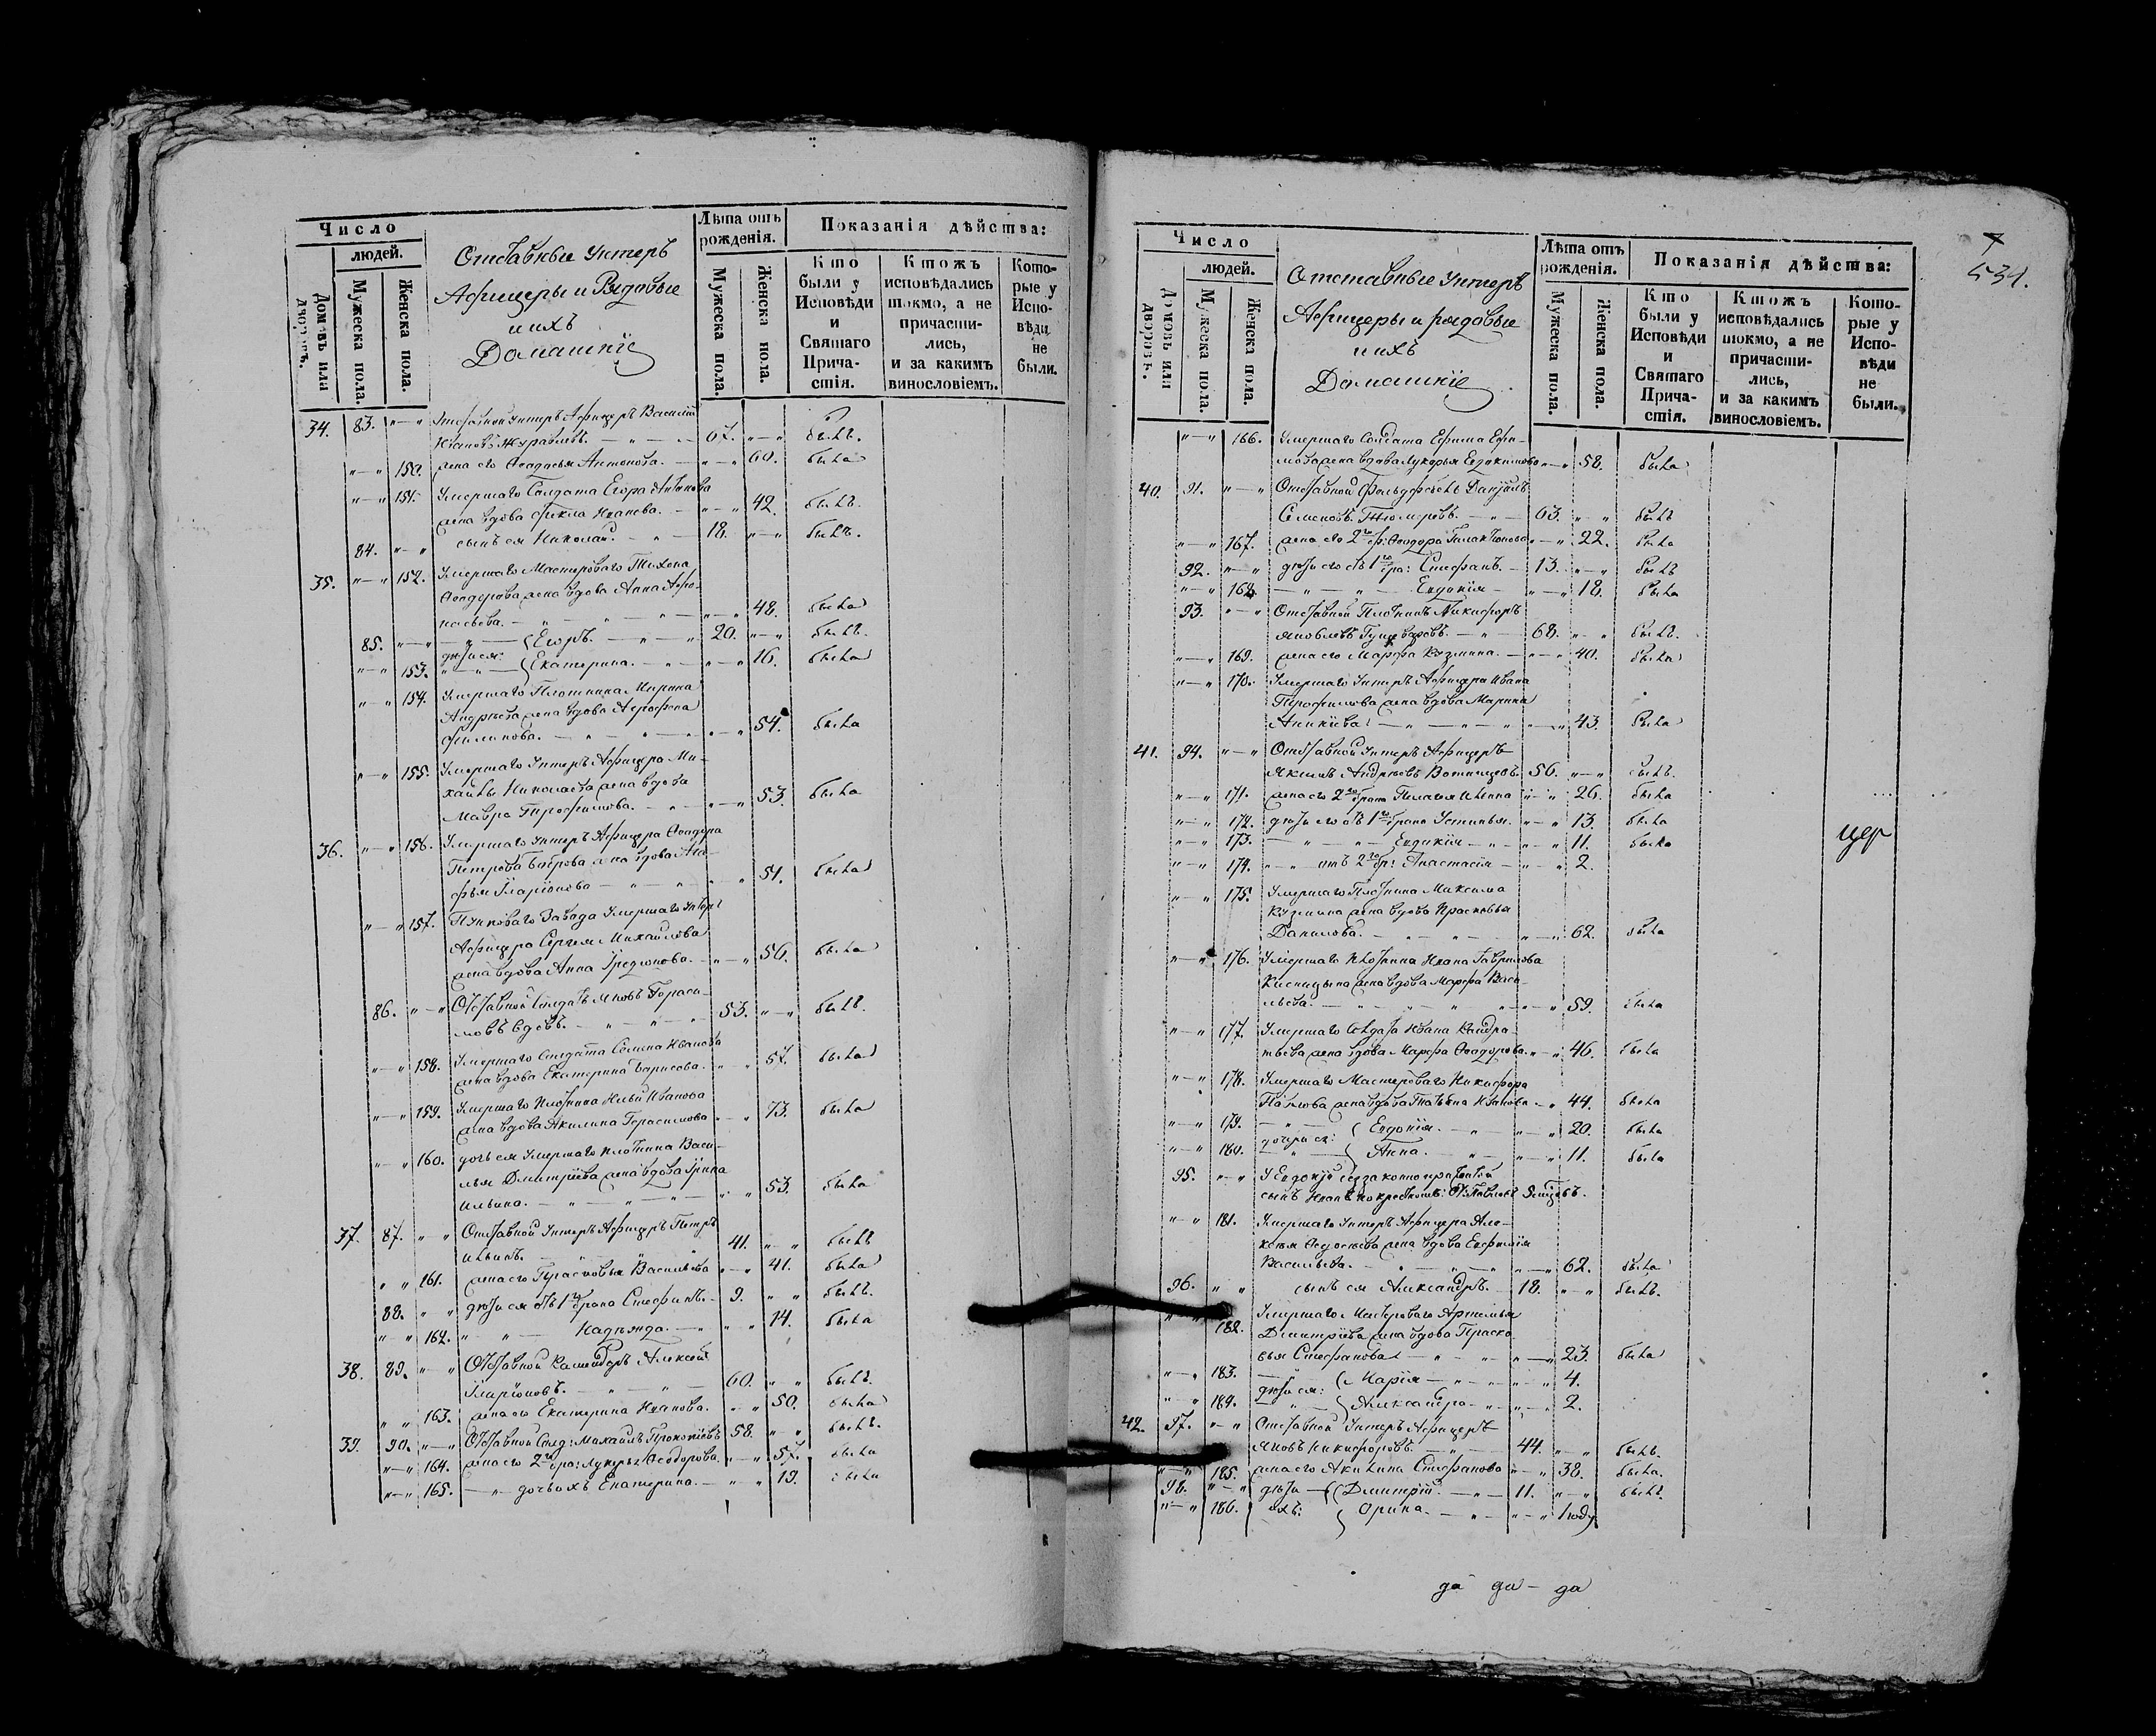 Число
людей.
Домовъ или дворовъ.
Мужеска пола.
Женска пола.
Отставные Унтеръ
Афицеры и Рядовые
и ихъ
Домашніе
Лѣта отъ рожденія.
Мужеска пола.
Женска пола.
Показанія дѣйства:
Кто были у Исповѣди и Святаго Причастія.
Ктожъ исповѣдались токмо, а не причастились, и за какимъ винословіемъ.
Которые у Исповѣди не были.
34. 83. Отставной Унтеръ Афицеръ Василій
Ивановъ Журавлевъ. 67. былъ.
150. жена его Феодосья Антонова. 60. была
151. Умершаго Солдата Егора Антонова
жена вдова Фекла Иванова. 42. былъ.
84. сынъ ея Николай. 18. былъ.
35. 152. Умершаго Мастероваго Тихона
Феодорова жена вдова Анна Афо-
насьева. 48. была
85. дѣти ея: Егоръ. 20. былъ.
153. Екатерина. 16. была
154. Умершаго Плотника Мирона
Андреева жена вдова Агрофена
Филипова. 54. была
155. Умершаго Унтеръ Афицера Ми-
хаилы Николаева жена вдова
Мавра Трофимова. 53. была
36. 156. Умершаго Унтеръ Афицера Феодора
Петрова Боброва жена вдова Ага-
фья Иларіонова 51. была
157. Умершаго Унтеръ
Афицера Сергея Михайлова
жена вдова Анна 56. была
86. Отставной Солдатъ Яковъ Гераси-
мовъ вдовъ. 53. былъ.
158. Умершаго Солдата Семена Иванова
жена вдова Екатерина Борисова. 57. была
159. Умершаго Плотника Ильи Иванова
жена вдова Акилина Герасимова 73. была
160. дочь ея умершаго плотника Васи-
лья Дмитріева жена вдова Ирина
Ильина. 53. была
37. 87. Отставной Унтеръ Афицеръ Петръ
Ильинъ. 41. былъ
161. жена его Прасковья Васильева 41. была
88. дѣти ея отъ 1го брака Стефанъ. 9. былъ.
162. Надежда. 14. была
38. 89. Отставной Алексей
Иларіоновъ. 60. былъ.
163. жена его Екатерина Иванова. 50. была
39. 90. Отставной Солд: Михаилъ Прокопіевъ 58. былъ.
164. жена его 2го бра: Лукерья Феодорова. 57. была
165. дочь ихъ Екатерина. 19. была
534.
Число
людей.
Домовъ или дворовъ.
Мужеска пола.
Женска пола.
Отставные Унтеръ
Афицеры и рядовые
и ихъ
Домашніе
Лѣта отъ рожденія.
Мужеска пола.
Женска пола.
Показанія дѣйства:
Кто были у Исповѣди и Святаго Причастія.
Ктожъ исповѣдались токмо, а не причастились, и за какимъ винословіемъ.
Которые у Исповѣди не были.
166. Умершаго Солдата Ефима Ефи-
мова жена вдова Лукерья Евдокимова 58. была
40. 91. Отставной Фельдфебель Данила
Семеновъ 63. былъ
167. жена его 2го бр: Феодора 22. была
92. дѣти его отъ 1го бра: Стефанъ. 13. былъ
168. Евдокія 18. была
93. Отставной Плотникъ Никифоръ
Яковлевъ 68. былъ.
169. жена его Марфа Кузмина. 40. была
170. Умершаго Унтеръ Афицера Ивана
Трофимова жена вдова Марина
Аникіева 43 была
41. 94. Отставной Унтеръ Афицеръ
Якимъ Андреевъ 56. былъ.
171. жена его 2го брака Пелагея Ильина 26. была
172. дѣти его отъ 1го брака Устинья. 13. была
173. Евдокія 11. была
174. отъ 2го бр: Анастасія 2.
175. Умершаго Плотника Максима
Кузмина жена вдова Прасковья
Данилова. 62. была
176. Умершаго плотника Ивана Гаврилова
жена вдова Марфа Васи-
льева. 59. была
177. Умершаго Солдата Ивана Кондра-
тьева жена вдова Марфа Феодорова. 46. была
178. Умершаго Мастероваго Никифора
Павлова жена вдова Татьяна Иванова 44. была
179. дочери ея: Евдокія. 20. была
180. Анна. 11. была
95. У Евдокіи незаконноприжитой
сынъ Иванъ
181. Умершаго Унтеръ Афицера Але-
ксея жена вдова Евфимія
Васильева. 62. была
96. сынъ ея Александръ. 18. былъ.
182. Умершаго Мастероваго Артемья
Дмитріева жена вдова Праско-
вья Стефанова 23. была
183. дѣти ея: Марія 4.
184. Александра 2.
42. 97. Отставной Унтеръ Афицеръ
Яковъ Никифоровъ. 44. былъ.
185. жена его Акилина Стефанова 38. была.
98. дѣти Дмитрій. 11. былъ.
186. ихъ: Орина. 1 году
да да – да